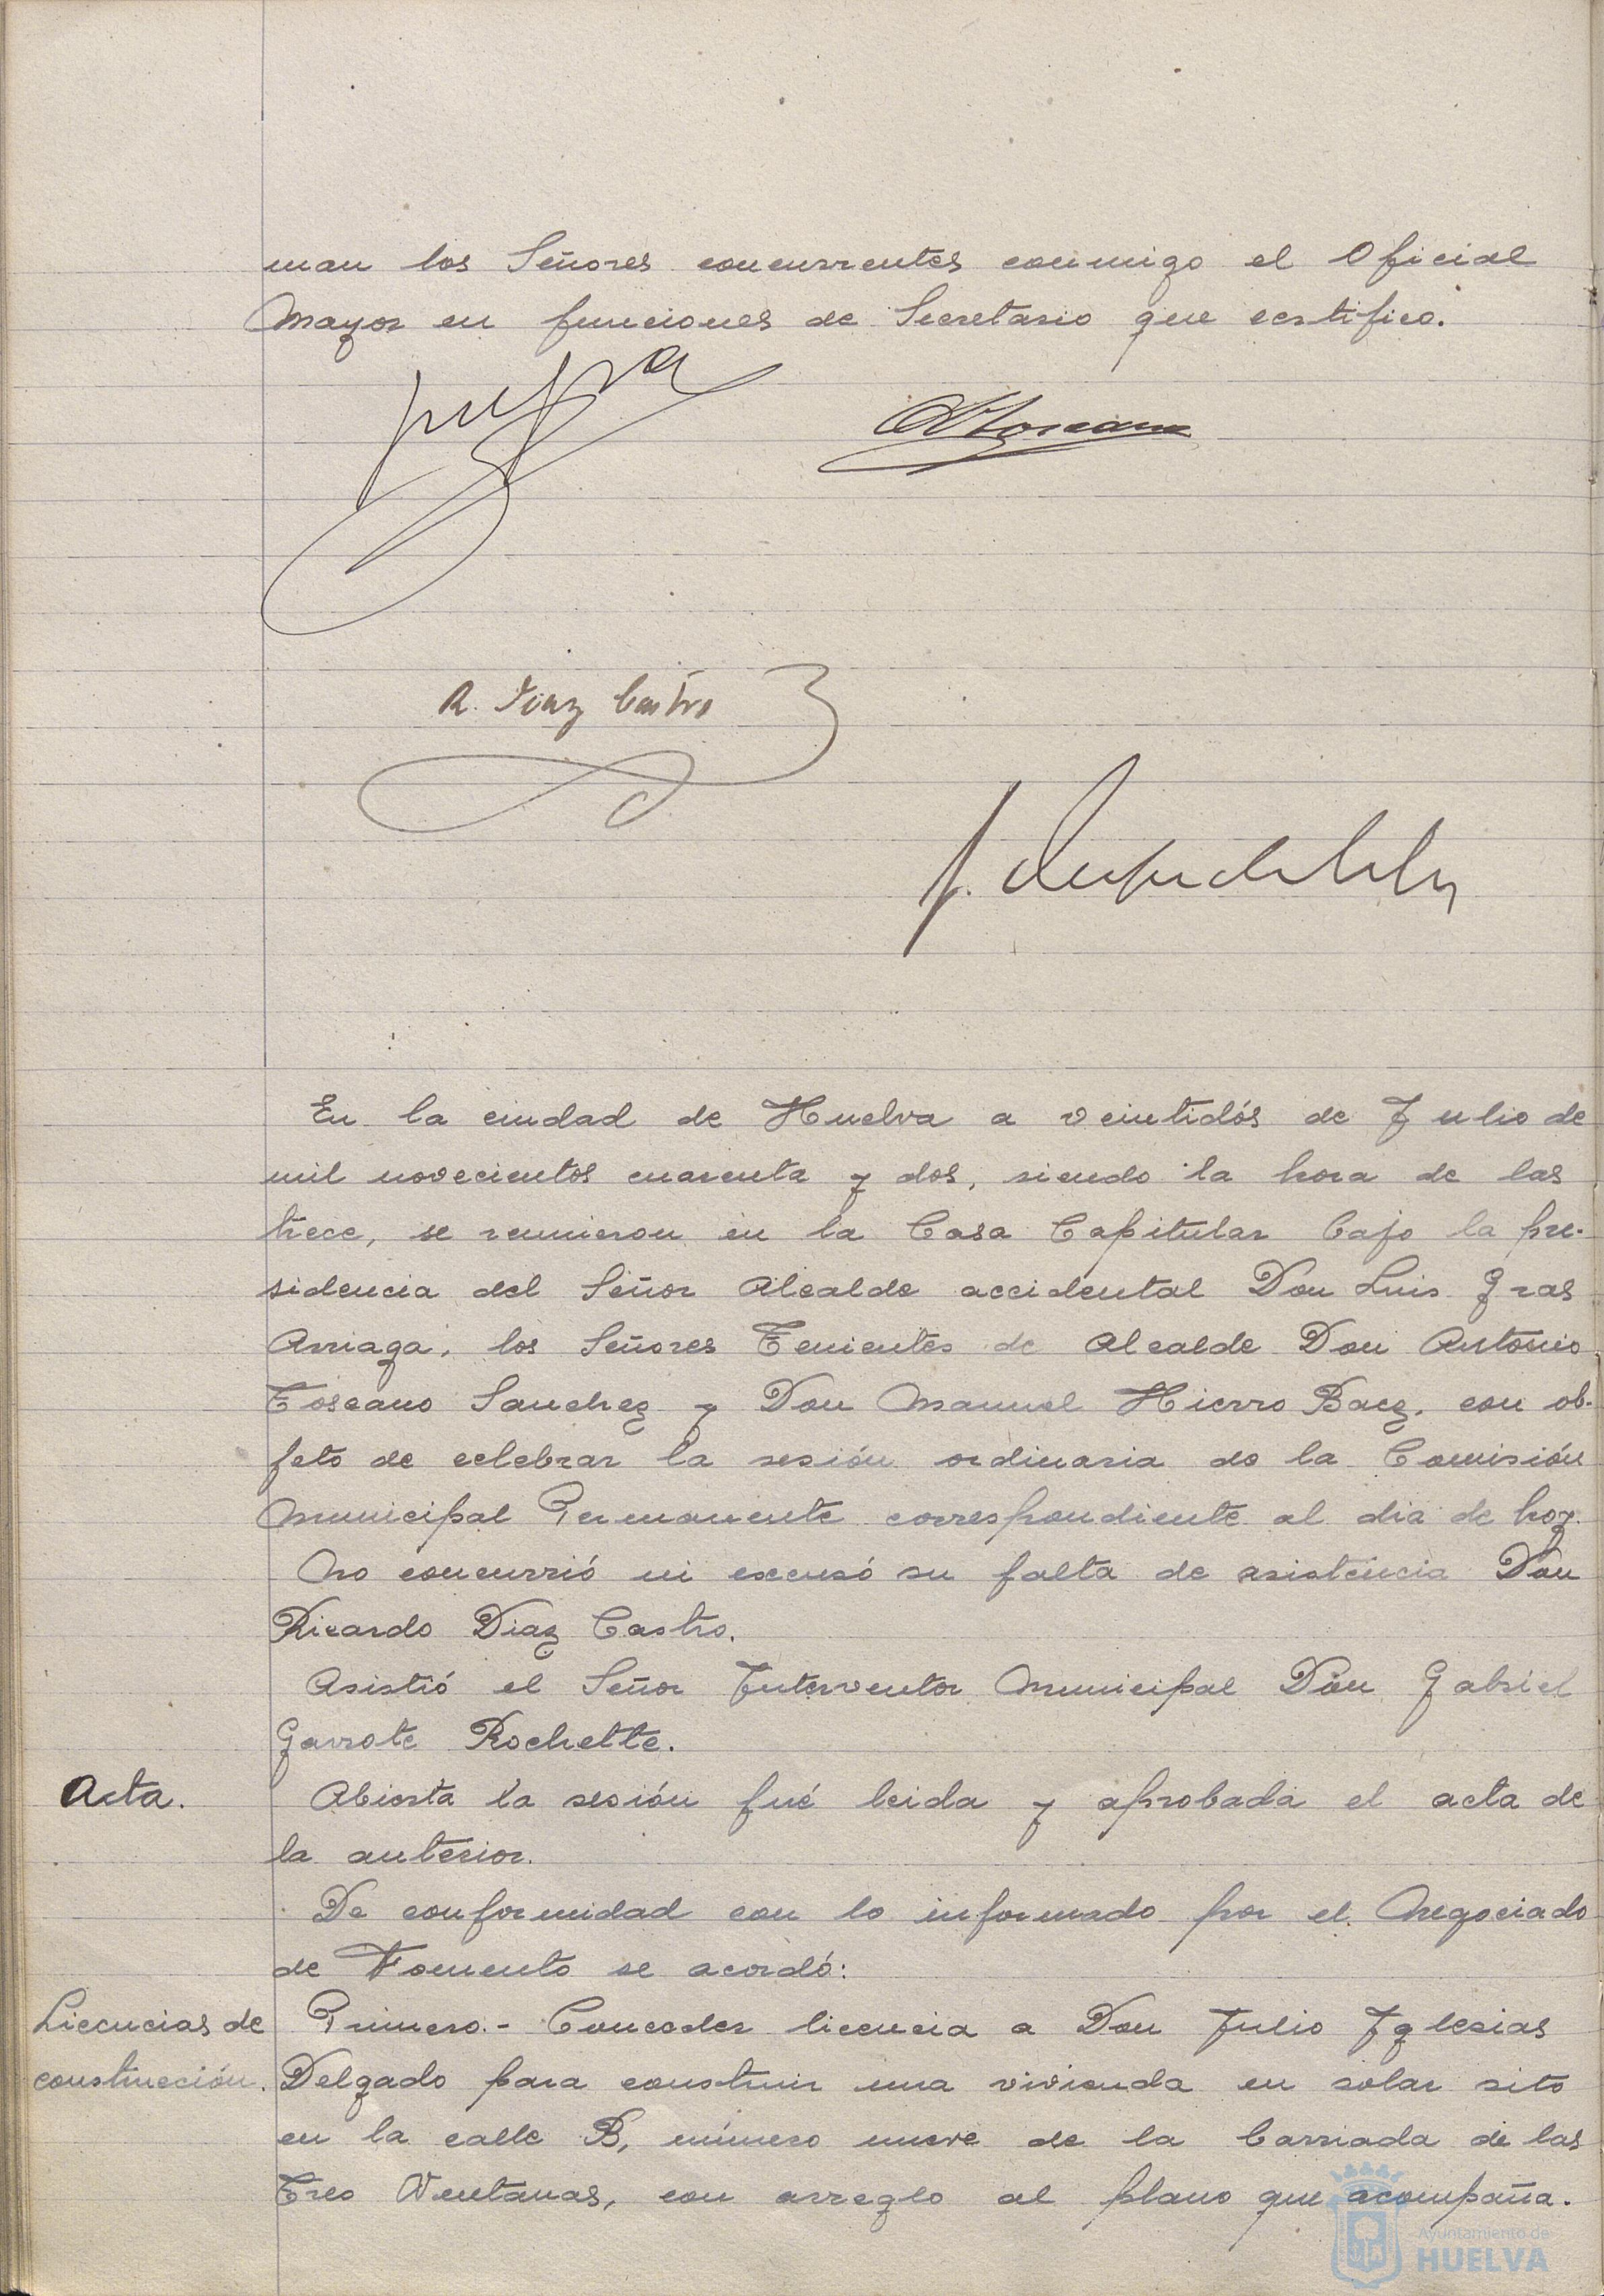 man los Señores concurrentes conmigo el Oficial
Mayor en funciones de Secretario que certifico.
A Toscano
R. Diaz Castro
En la ciudad de Huelva a veintidós de Julio de
mil novecientos cuarenta y dos, siendo la hora de las
trece, se reunieron en la Casa Capitular bajo la pre-
sidencia del Señor Alcalde accidental Don Luis Gras
Arriaga, los Señores Tenientes de Alcalde Don Antonio
Toscano Sanchez y Don Manuel Hierro Baez, con ob-
jeto de celebrar la sesión ordinaria de la Comisión
Municipal Permanente correspondiente al dia de hoy.
No concurrió ni excusó su falta de asistencia Don
Ricardo Diaz Castro.
Asistió el Señor Interventor Municipal Don Gabriel
Garrote Rochette.
Acta. Abierta la sesión fué leida y aprobada el acta de
la anterior.
De conformidad con lo informado por el Negociado
de Fomento se acordó:
Licencias de Primero.- Conceder licencia a Don Julio Iglesias
construcción. Delgado para construir una vivienda en solar sito
en la calle B, número nueve de la barriada de las
Tres Ventanas, con arreglo al plano que acompaña.
Ayuntamiento de
HUELVA